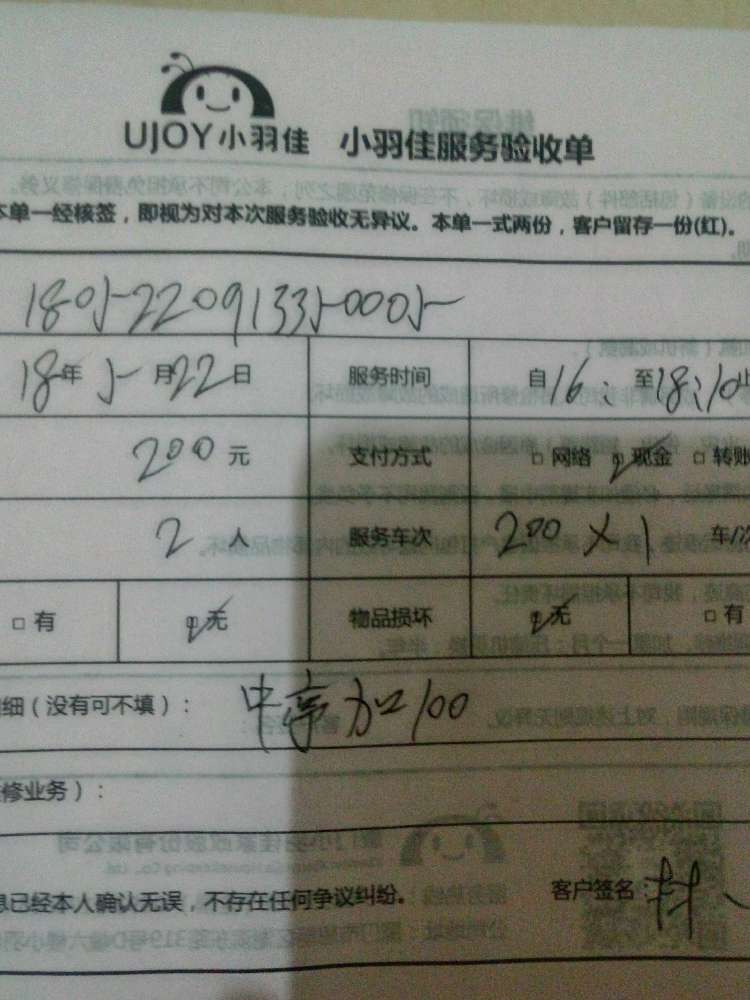 UJOY小羽佳 小羽佳服务验收单
本单一经核签，即视为对本次服务验收无异议。本单一式两份，客户留存一份(红)。
1805220913350005
18年5月22日 服务时间 自16: 至18:10止
200元 支付方式 □网络 ☑现金 □转账
2人 服务车次 200×1 车/次
□有 ☑无 物品损坏 ☑无 □有
细（没有可不填）： 中 加100
修业务）：
息已经本人确认无误，不存在任何争议纠纷。 客户签名：